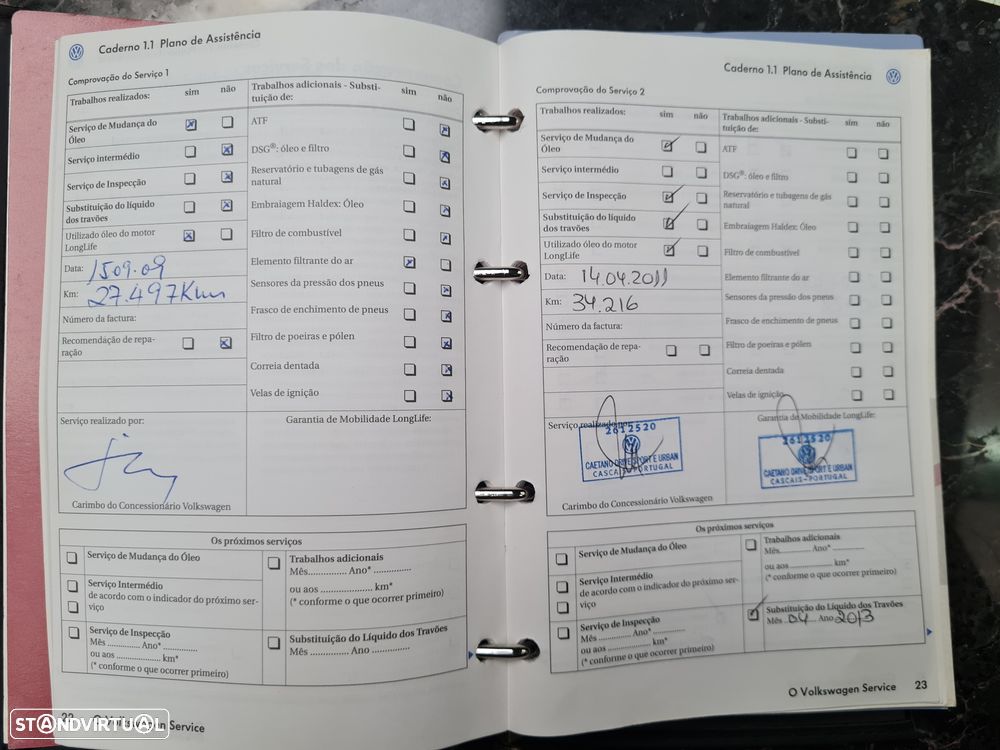 Caderno 1.1 Plano de Assistência
Comprovação do Serviço 1
Trabalhos realizados: sim não
Serviço de Mudança do
Óleo
Serviço intermédio
Serviço de Inspecção
Substituição do líquido
dos travões
Utilizado óleo do motor
LongLife
Data: 15 09.09
Km: 27.497 Km
Número da factura:
Recomendação de repa-
ração
Trabalhos adicionais - Substi-
tuição de: sim não
ATF
DSG®: óleo e filtro
Reservatório e tubagens de gás
natural
Embraiagem Haldex: Óleo
Filtro de combustível
Elemento filtrante do ar
Sensores da pressão dos pneus
Frasco de enchimento de pneus
Filtro de poeiras e pólen
Correia dentada
Velas de ignição
Serviço realizado por:
Carimbo do Concessionário Volkswagen
Garantia de Mobilidade LongLife:
Os próximos serviços
Serviço de Mudança do Óleo
Serviço Intermédio
de acordo com o indicador do próximo ser-
viço
Serviço de Inspecção
Mês .............. Ano* ..............
ou aos .................... km*
(* conforme o que ocorrer primeiro)
Trabalhos adicionais
Mês............... Ano* ...............
ou aos .................... km*
(* conforme o que ocorrer primeiro)
Substituição do Líquido dos Travões
Mês .............. Ano ..............
22 O Volkswagen Service
STANDVIRTUAL
Caderno 1.1 Plano de Assistência
Comprovação do Serviço 2
Trabalhos realizados: sim não
Serviço de Mudança do
Óleo
Serviço intermédio
Serviço de Inspecção
Substituição do líquido
dos travões
Utilizado óleo do motor
LongLife
Data: 14.04.2011
Km: 34.216
Número da factura:
Recomendação de repa-
ração
Trabalhos adicionais - Substi-
tuição de: sim não
ATF
DSG®: óleo e filtro
Reservatório e tubagens de gás
natural
Embraiagem Haldex: Óleo
Filtro de combustível
Elemento filtrante do ar
Sensores da pressão dos pneus
Frasco de enchimento de pneus
Filtro de poeiras e pólen
Correia dentada
Velas de ignição
Serviço realizado por:
2612520
CAETANO DRIVE SPORT E URBAN
CASCAIS-PORTUGAL
Carimbo do Concessionário Volkswagen
Garantia de Mobilidade LongLife:
2612520
CAETANO DRIVE SPORT E URBAN
CASCAIS-PORTUGAL
Os próximos serviços
Serviço de Mudança do Óleo
Serviço Intermédio
de acordo com o indicador do próximo ser-
viço
Serviço de Inspecção
Mês .............. Ano* ..............
ou aos .................... km*
(* conforme o que ocorrer primeiro)
Trabalhos adicionais
Mês............... Ano* ...............
ou aos .................... km*
(* conforme o que ocorrer primeiro)
Substituição do Líquido dos Travões
Mês 04 Ano 2013
O Volkswagen Service 23